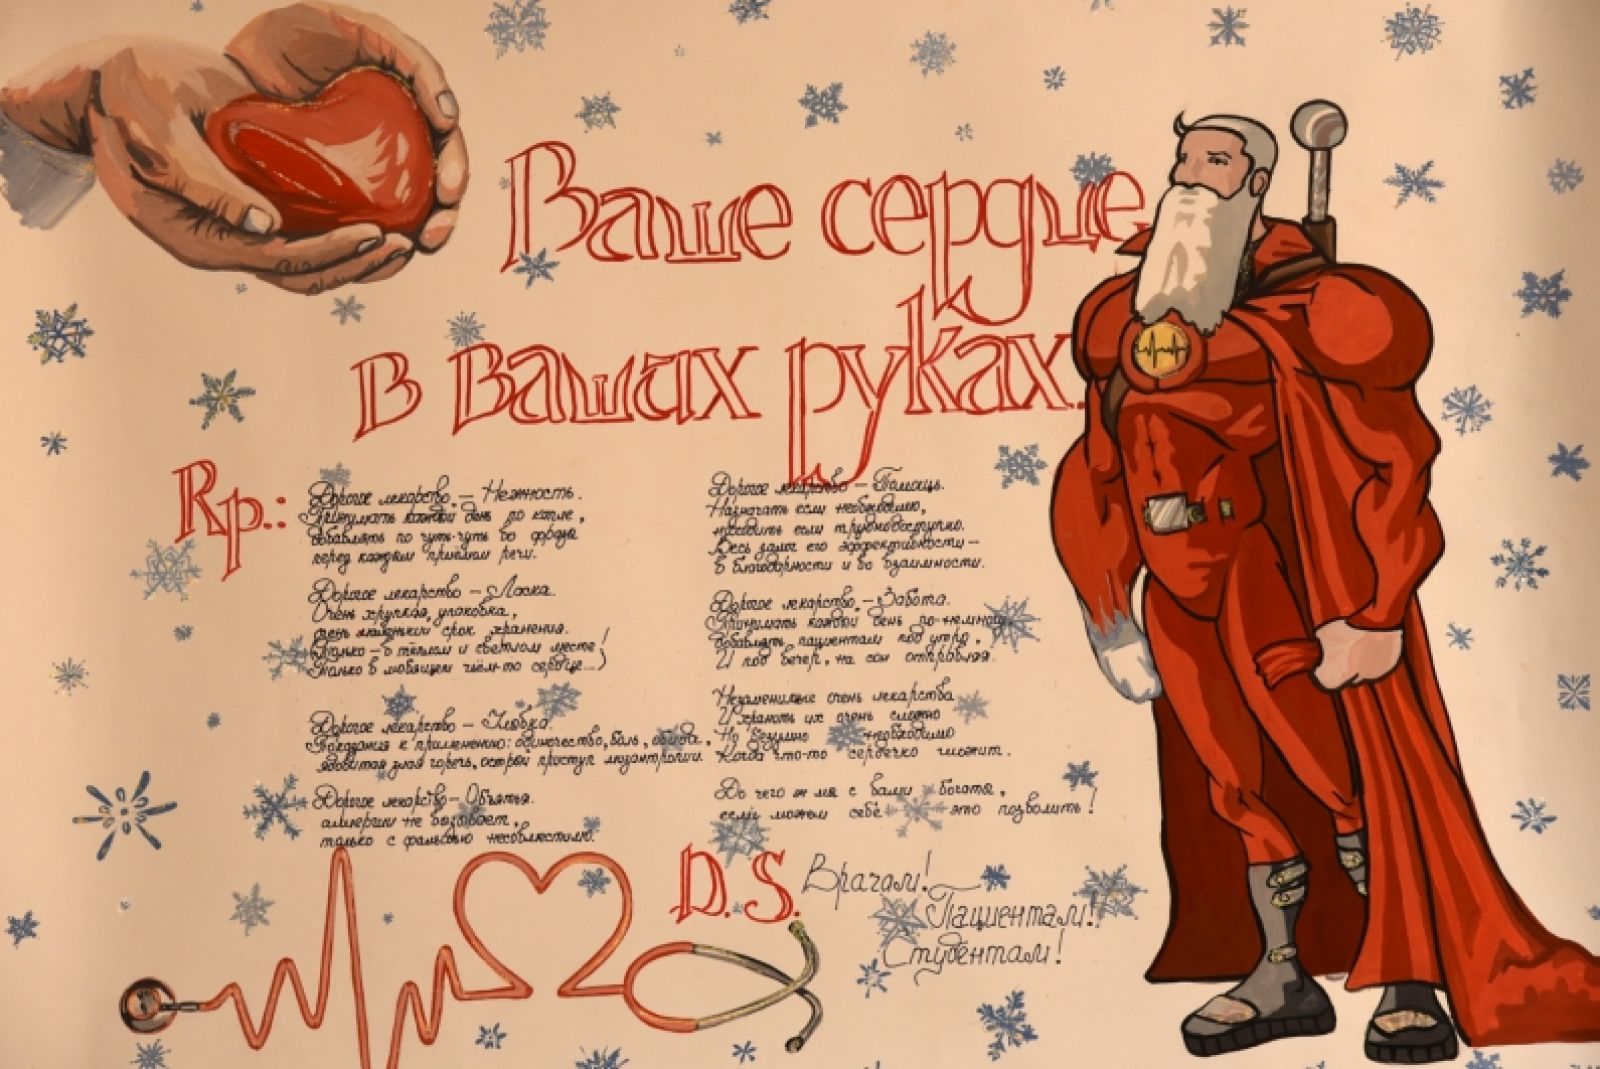 Ваше сердце
в ваших руках.
Rp.:
Дорогое лекарство – Нежность.
Принимать каждый день по капле,
добавлять по чуть-чуть во фразы
перед каждым приёмом речи.
Дорогое лекарство – Ласка.
Очень хрупкая упаковка,
очень маленький срок хранения.
Только – в тёплом и светлом месте!
Только в любящем чьём-то сердце...)
Дорогое лекарство – Улыбка.
Показания к применению: одиночество, боль, обида,
ядовитая злая горечь, острый приступ мизантропии.
Дорогое лекарство – Объятья.
аллергии не вызывает,
только с фальшью несовместимо.
Дорогое лекарство – Помощь.
Назначать если необходимо,
находить если труднодоступно.
Весь залог его эффективности –
в благодарности и во взаимности.
Дорогое лекарство – Забота.
Принимать каждый день по-немногу,
добавлять пациентам под утро,
И под вечер, на сон отправляя.
Незаменимые очень лекарства
И хранить их очень сложно
Но безумно необходимо
Когда что-то сердечко гложит.
До чего ж мы с вами богаты,
если можем себе это позволить!
D. S. Врачам!
Пациентам!
Студентам!